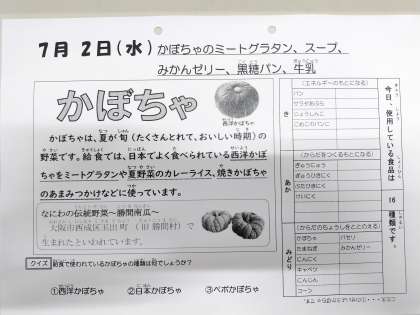 7月 2日(水) かぼちゃのミートグラタン、スープ、
みかんゼリー、黒糖パン、牛乳
かぼちゃ
西洋かぼちゃ
かぼちゃは、夏が旬(たくさんとれて、おいしい時期)の
野菜です。給食では、日本でよく食べられている西洋かぼ
ちゃをミートグラタンや夏野菜のカレーライス、焼きかぼちゃ
のあまみつかけなどに使っています。
なにわの伝統野菜~勝間南瓜~
大阪市西成区玉出町(旧勝間村)で
生まれたといわれています。
クイズ 給食で使われているかぼちゃの種類は何でしょうか?
①西洋かぼちゃ ②日本かぼちゃ ③ペポかぼちゃ
今日、使用している食品は 16 種類です。
き
(エネルギーのもとになる)
パン
サラダあぶら
こめこのパンこ
あか
(からだをつくるもとになる)
ぎゅうにゅう
ぶたひきにく
けいにく
みどり
(からだのちょうしをととのえる)
かぼちゃ パセリ
たまねぎ みかんゼリー
にんじん
キャベツ
にんじん
コーン